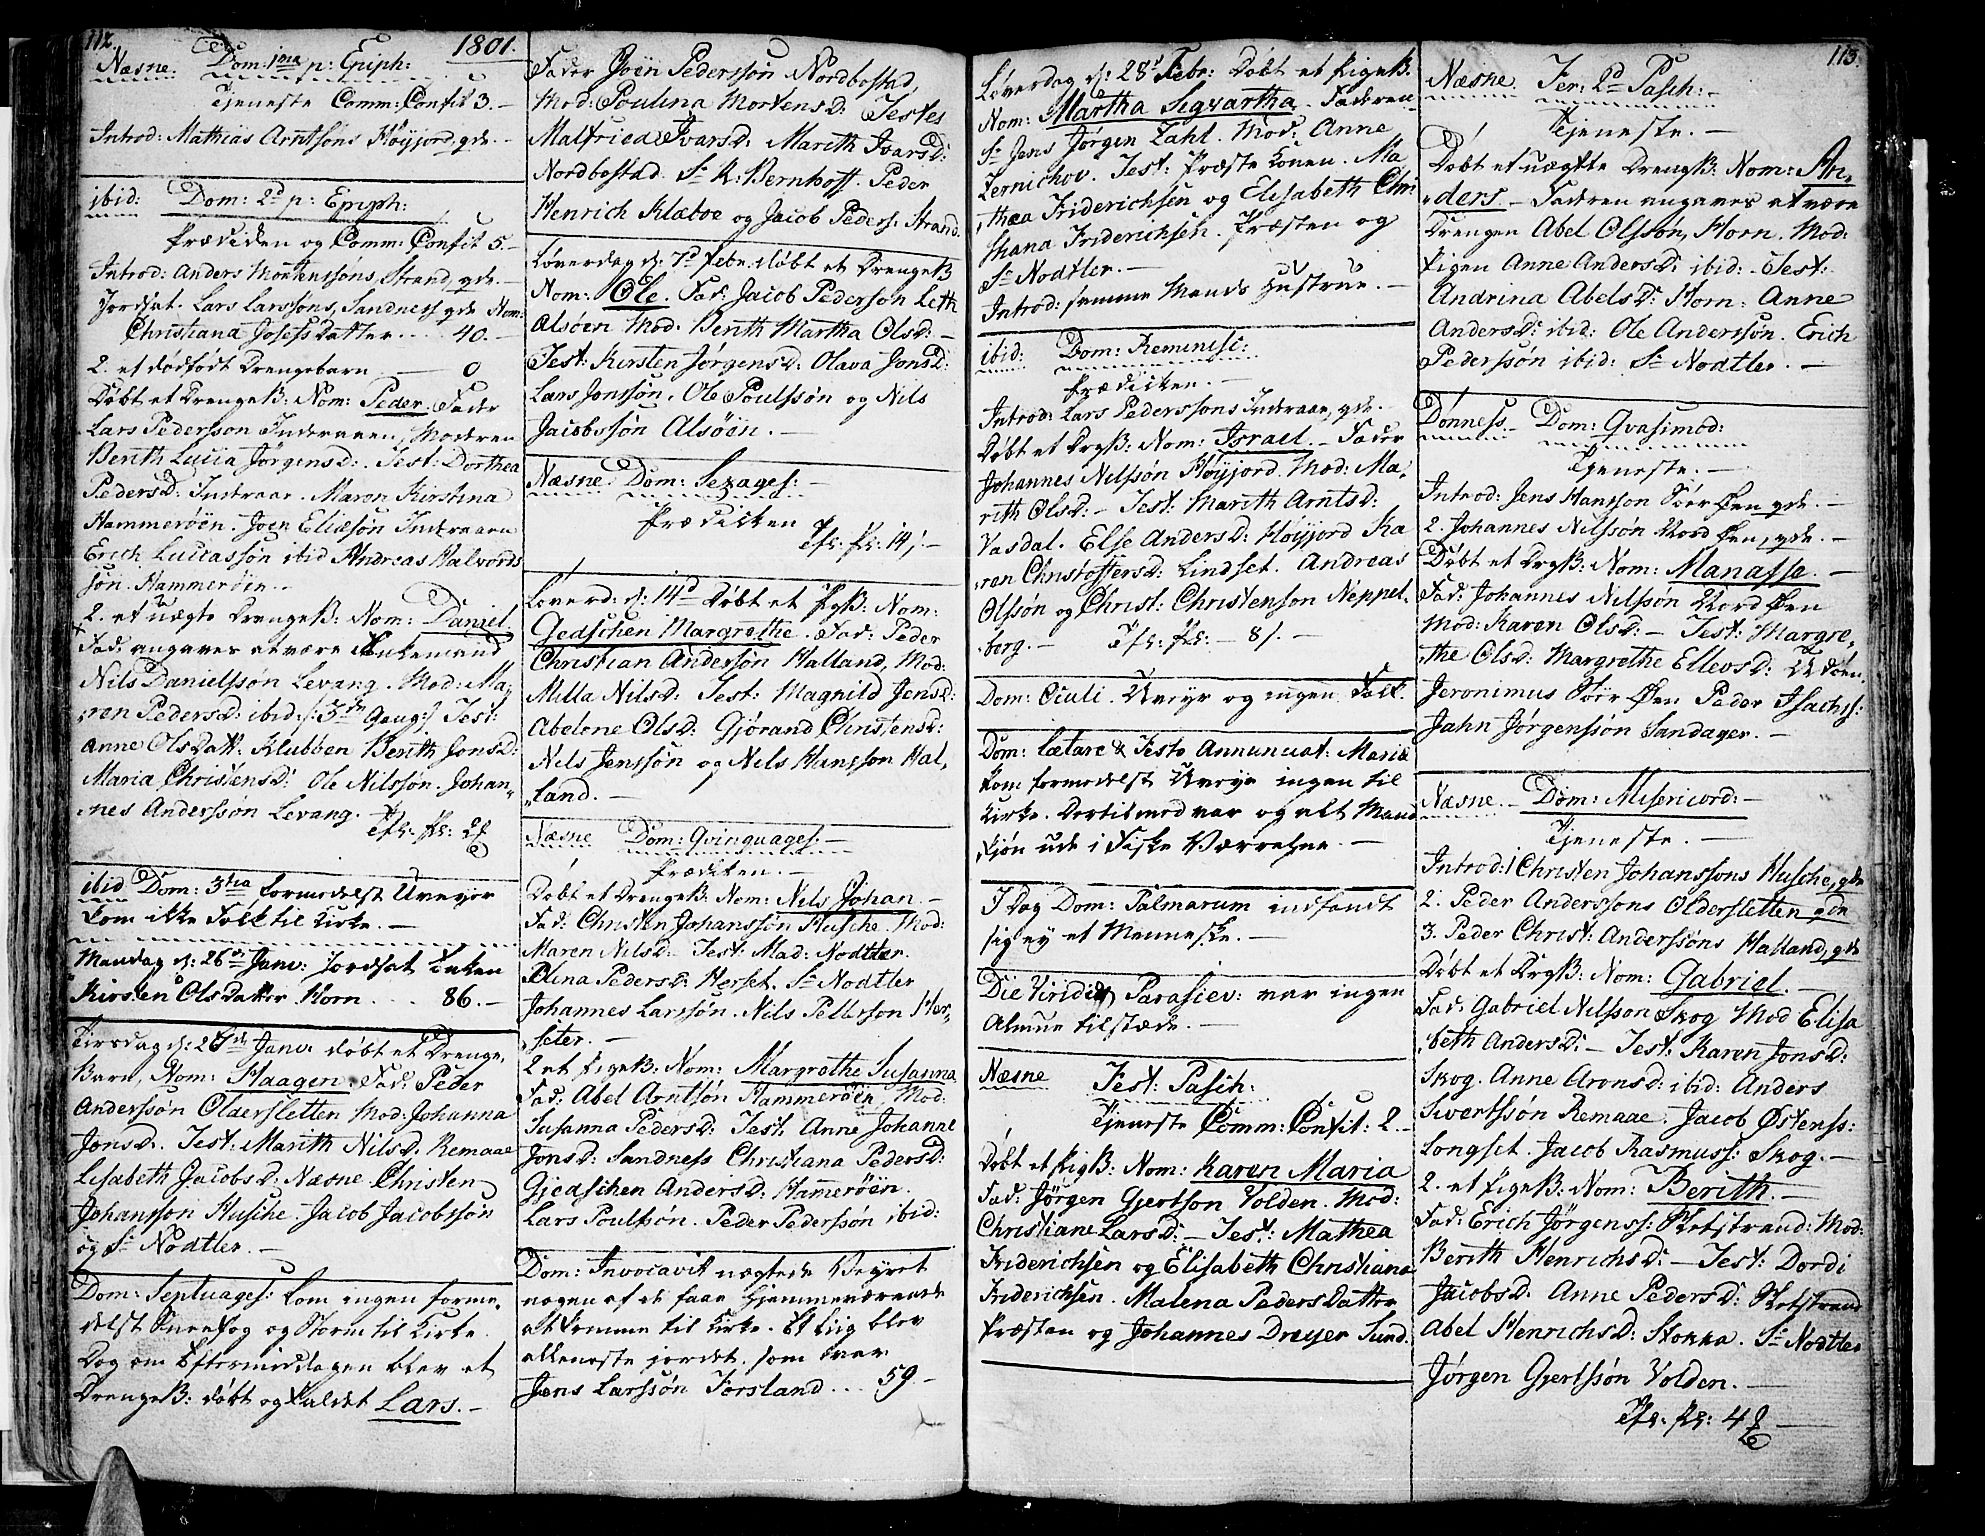 112.
1801.
Næsne. Dom: 1ma p: Epiph:
Tjeneste Comm: Confit 3.—
Introd: Mathias Arntsøns Høyjord, gde.—
ibid: Dom: 2d p: Epiph:
Prædiken og Comm: Confit 5.—
Introd: Anders Mortenssøns, Strand, gde.—
Jordsat. Lars Larssons, Sandness gde Nom:
Christiana Josefs Datter. . . . 40.—
2. et dødfødt Drengebarn — 0
Døbt et DrengeB: Nom: Peder. Fader
Lars Pedersson Inderaaen, Moderen
Berith Lucia JørgensD: Test: Dorthea
PedersD: Inderaae. Maren Kirstina
Hammerøen. Joen Eliesøn Inderaaen
Erich Lucassøn ibid Andreas Halvords
søn. Hammerøen.—
2. et uægte DrengeB: Nom: Daniel.
Fad: angaves at være Enkemand
Nils Danielssøn Levang. Mod: Ma,
,ren PedersD: ibid: /: 3die Gang :/ Test:
Anne OlsDatt: Klubben Berith JonsD:
Maria ChristensD: Ole Nilssøn. Johan,
,nes Anderssøn Levang.
Tfl: Pr: 2
ibid Dom: 3tia formedelst Uveyr
kom ikke Folk til Kirke.—
Mandag d: 26de Janv: Jordsat Enken
Kirsten OlsDatter Horn . . . 86.—
Tirsdag d: 2 Janv: døbt et Drenge,
Barn, Nom: Haagen. Fad: Peder
Anderssøn Oldersletten Mod: Johanna
JonsD. Test: Marith NilsD. Remaae
Lisabeth JacobsD: Næsne Christen
Johansson Husche Jacob Jacobssøn
og Sr Nodtler.—
Dom: Septuages: kom ingen forme,
delst Sneefog og Storm til Kirke
Dog om Eftermiddagen blev et
DrengeB: døbt og kaldet Lars.—
Fader Joen Pederssøn Nordbostad
Mod: Poulina MortensD: Testes
Malfrida IvarsD: Marith IvarsD:
Nordbostad. Sr K: Bernhoff. Peder
Henrich Klæboe og Jacob Peders: Strand.
Løverdag d: 7d Febr: døbt et DrengeB
Nom: Ole. Fad: Jacob Pederson Leth
Alsøen Mod: Berith Martha OlsD:—
Test: Kirsten JørgensD: Olava JonsD:
Lars Jonssøn, Ole Poulssøn og Nils
Jacobssøn Alsøen.—
Næsne. Dom: Sexages:—
Prædiken
Tfl: Pr: 14,—
Løverd: d: 14d Døbt et PgB: Nom:
Gedschen Margrethe. Fad: Peder
Christian Anderssøn Halland, Mod:
Milla NilsD: Test: Magnild JensD:
Abelone OlsD: Gjørand ChristensD:
Nils Jenssøn og Nils Hansson Hal,
,land.—
Næsne Dom: Qvinquages:—
Prædiken.—
Døbt et DrengeB: Nom: Nils Johan.—
Fad: Christen Johanssøn Husche. Mod:
Maren NilsD:— Test: Mad: Nodtler.
Elina PedersD: Herset. Sr Nodtler
Johannes Larssøn. Nils Pettersøn Her,
,seter.—
2 et PigeB: Nom: Margrethe Susanna
Fad: Abel Arntsøn Hammerøen, Mod:
Susanna PedersD: Test: Anne Johanne
JonsD: Sandness Christiana PedersD:
Gjedschen AndersD: Hamerøen.
Lars Poulsøn. Peder Pederssøn ibid:
Dom: Invocavit nægtede Veyret
nogen af de faae Hjemmeværende
at komme til Kirke. Et Liig blev
alleneste jordet. som var
Jens Larssøn Forsland . . . 59—
113.
Løverdag d: 28d Febr: Døbt et PigeB.
Nom: Martha Sigvartha. Faderen
Sr Jens Jørgen Zahl. Mod: Anne
Zernichov. Test: Præste Konen. Ma
,thea Friderichsen og Elisabeth Chri
Friderichsen. Præsten og
Sr Nodtler.—
Introd: samme Mands Hustrue.—
ibid: Dom: Reminisc:
Prædiken.—
Introd: Lars Pederssons Inderaae, gde.—
Døbt et DrgB: Nom: Israel.— Fader
Johannes Nilssøn Høyjord. Mod: Ma,
rith OlsD:— Test: Marith ArntsD:
Vasdal. Else AndersD: Høyjord Ka
,ren ChristoffersD: Lindset. Andreas
Olssøn og Christ: Christenson Neppel,
,berg.— Tfl: Pr: — 8/.—
Dom: Oculi. Uveyr og ingen Folk.—
Dom: Lætare & Festo Annunciat: Mariæ
kom formedelst Uveyr ingen til
Kirke. Dertil med var og alt Mand,
,kjøn ude i Fiske Værrerne.—
I Dag Dom: Palmarum indfandt
sig ey et Menneske.—
Die Viridi Parasiev: var ingen
Almue tilstæde.—
Næsne Fest: Pasch:
Tjeneste Comm: Confit: 2.—
Døbt et PigB: Nom: Karen Maria
Fad: Jørgen Gjertson Volden. Mod:
Christiane LarsD:— Test: Mathea
Friderichsen og Elisabeth Christiana
Friderichsen. Malena PedersDatter
Præsten og Johannes Dreyer Sund.
Næsne Fer: 2d Pasch:—
Tjeneste.—
Døbt et uægtte DrengB. Nom: An,
,ders.— Faderen angaves at være
Drengen Abel Olssøn, Horn. Mod:
Pigen Anne AndersD: ibid:. Test:
Andrina AbelsD: Horn: Anne
AndersD: ibid: Ole Anderssøn. Erich
Pederssøn ibid: Sr Nodtler.—
Dønness. Dom: Qvasimod:
Tjeneste.—
Introd: Jens Hansson Sør Øen gde.—
2. Johannes Nilssøn Nord Øen, gde.—
Døbt et DrgB: Nom: Manasse.—
Fad: Johannes Nilssøn Nord Øen
Mod: Karen OlsD:— Test: Margre,
,the OlsD: Margrethe EllevsD:
Jeronimus Sør Øen Peder Isachs:
Jahn Jørgenssøn Sandager.—
Næsne.— Dom: Misericord:—
Tjeneste.—
Introd: 1 Christen Johanssons Husche, gde
2. Peder Anderssons Oldersletten gde
3. Peder Christ: Anderssøns Halland, gde
Døbt et DrgB: Nom: Gabriel.—
Fad: Gabriel Nilsson Skog Mod Elisa
,beth AndersD:— Test: Karen JonsD:
Skog. Anne AronsD: ibid: Anders
Sivertssøn Remaae. Jacob Østenss:
Longset. Jacob Rasmuss: Skog.—
2. et PigeB: Nom: Berith.—
Fad: Erich Jørgenss: Pletstrand: Mod:
Berith HenrichsD:— Test: Dordi
JacobsD: Anne PedersD: Pletstrand
Abel HenrichsD: Stokka. Sr Nodtler
Jørgen Gjertssøn Volden.—
Tfl: Pr: 4 —